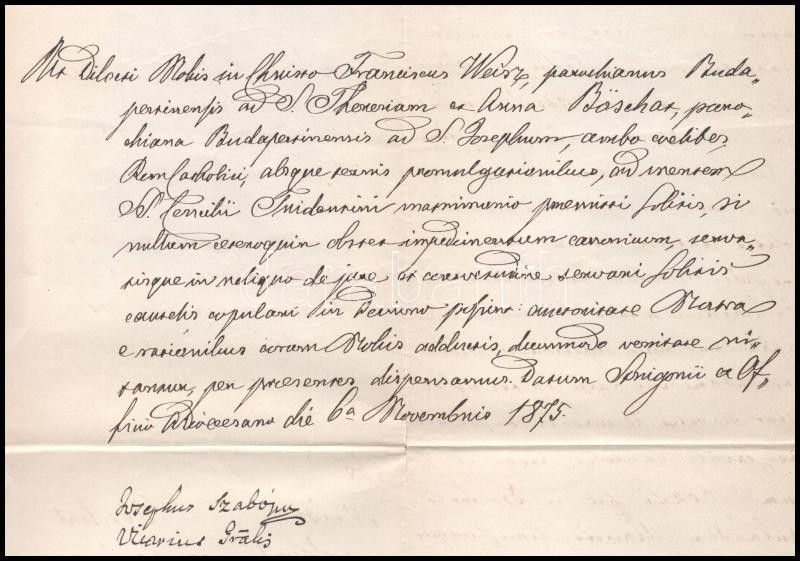 Ut Dilecti Nobis in Christo Franciscus Weisz, parochianus Buda„
pestinensis ad S. Theresiam et Anna Böschat, paro„
chiana Budapestinensis ad S. Josephum, ambo coelibes,
Rom Catholici, absque ternis promulgationibus, ad mentem
S. Concilii Tridentini matrimonio praemitti solitis, si
nullum ceteroquin obstet impedimentum canonicum, serva„
tisque in reliquo de jure et consvetudine servari solitis
cautelis copulari in Domino possint: auctoritate Nostra
e rationibus coram Nobis adductis, dummodo veritate ni„
tantur, per praesentes dispensamus. Datum Strigonii ex Of„
ficio Dioecesano die 6a Novembris 1875.
Josephus Szabó
Vicarius Grālis